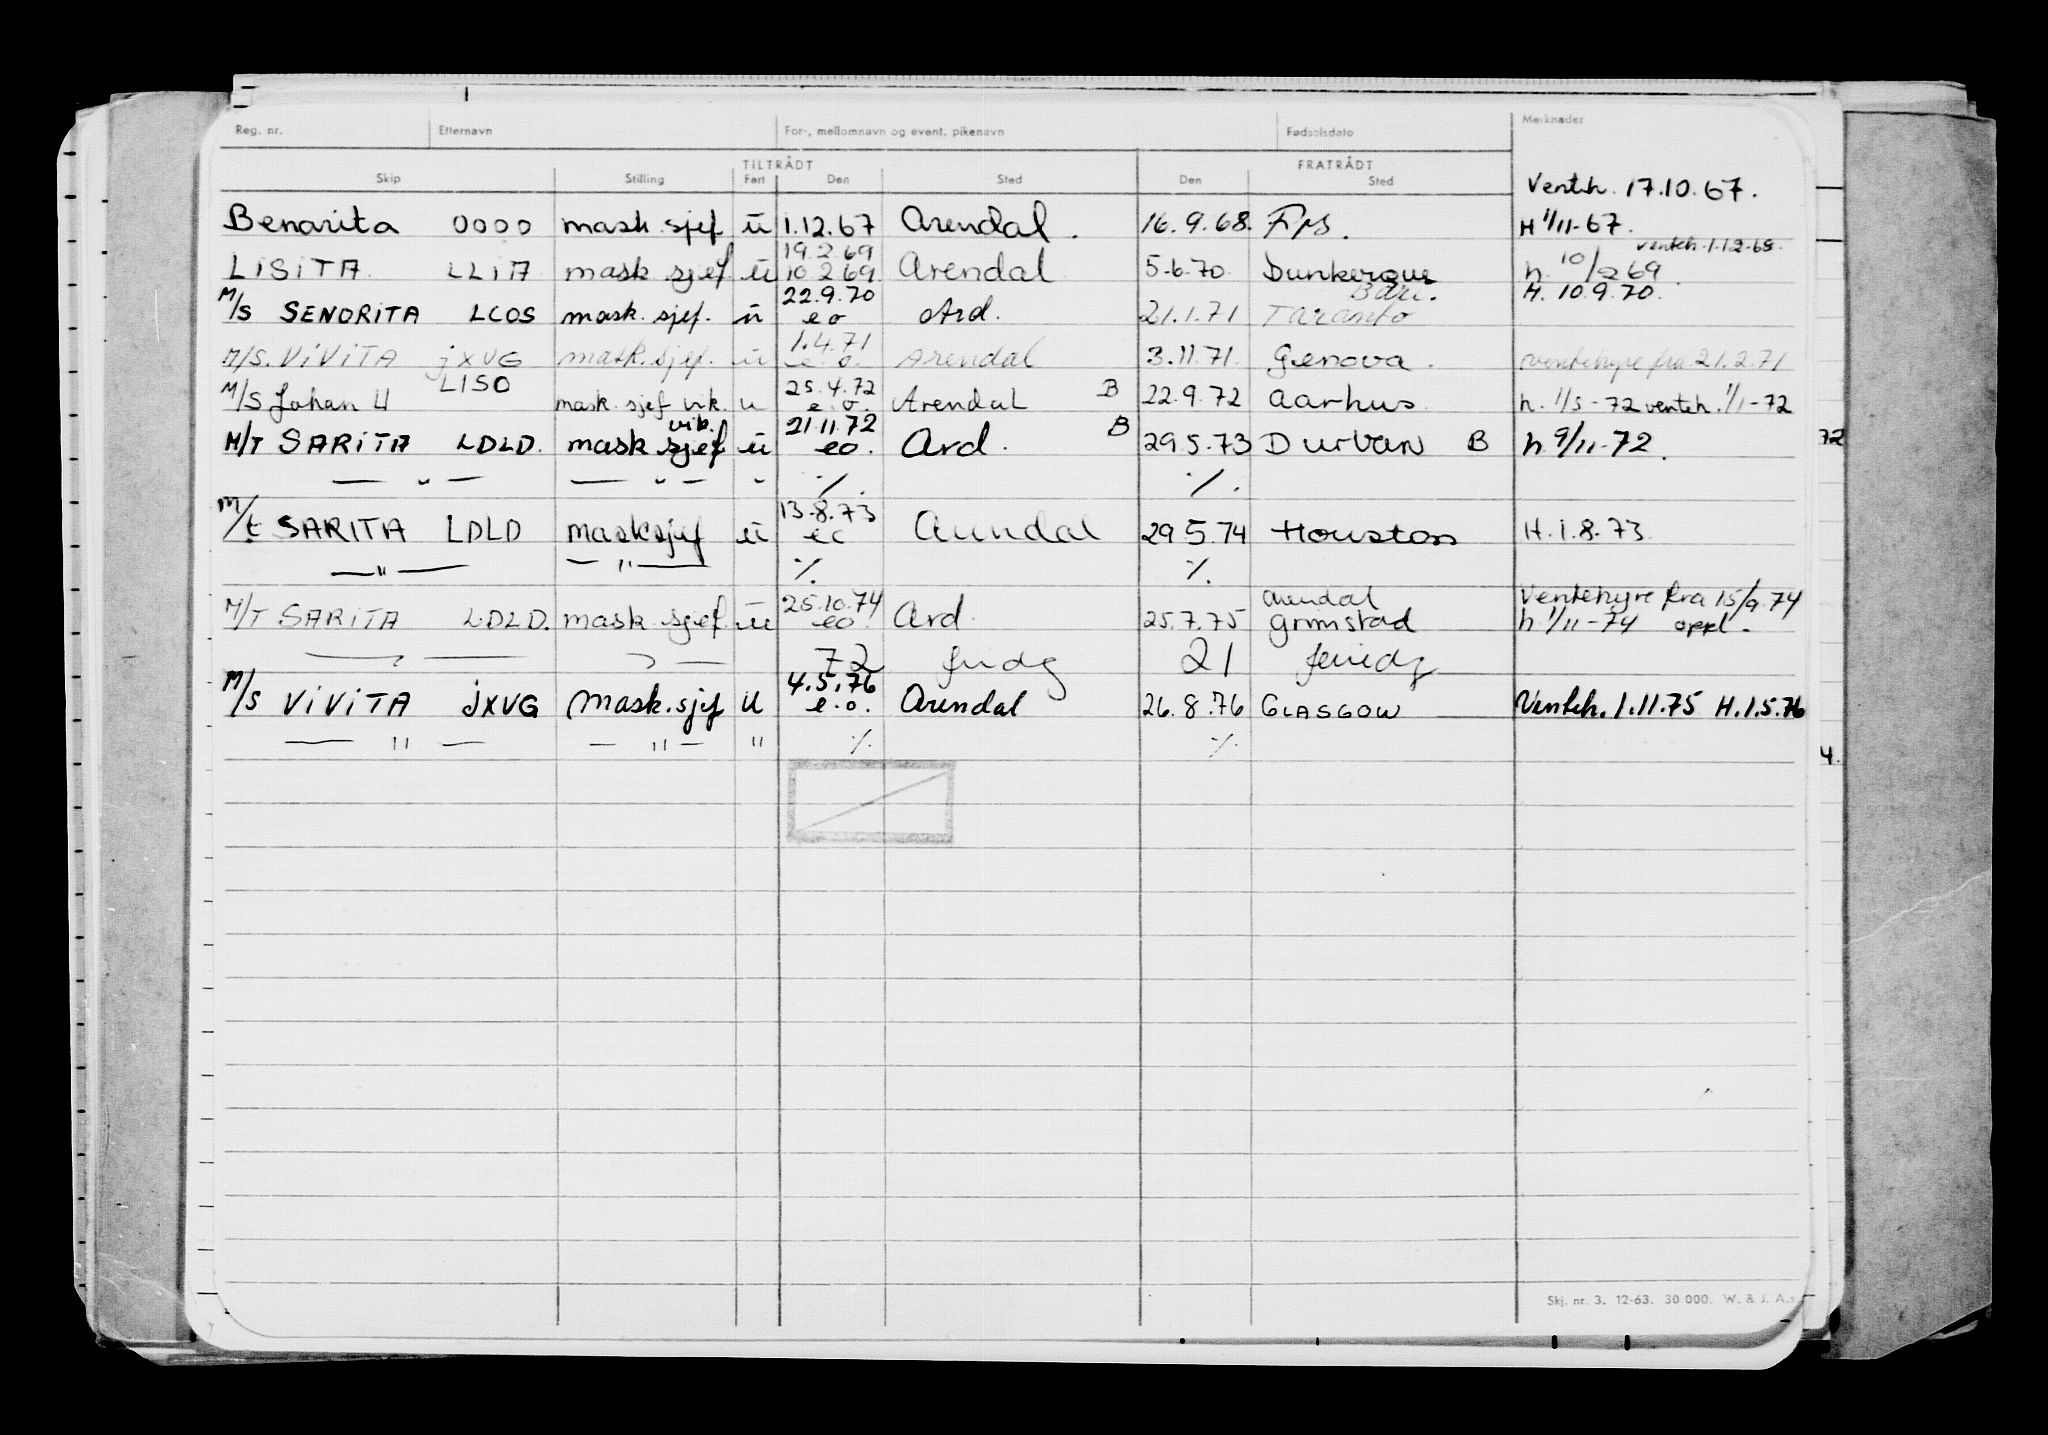 Reg. nr. Etternavn For-, mellomnavn og event. pikenavn Fødselsdato Merknader
TILTRÅDT FRATRÅDT
Skip Stilling Fart Den Sted Den Sted
Venteh. 17.10.67.
Benarita 0000 mask.sjef ū 1.12.67 Arendal. 16.9.68. H 1/11-67.
19.2.69 venteh. 1.12-68.
LISITA LLIA mask sjef. ū 10.2.69 Arendal 5-6.70. Dunkerque h. 10/2 69
22.9.70 Bari. H. 10.9.70.
M/S SENORITA LCOS mask. sjef. ū eo Ard. 21.1.71 Taranto
1.4.71
M/S. ViViTA jXVG mask.sjef. ū e.o. Arendal 3.11.71. Genova. Ventehyre fra 21.2.71
LISO 25.4.72 B
M/S Johan U mask. sjef vik. u e.o. Arendal 22.9.72 Aarhus. h. 1/5-72 venteh. 1/1-72
vik. 21.11.72 B
M/T SARiTA LDLD. mask sjef ū eo. Ard. 29.5.73 Durban B h 9/11-72. 72
— " — — " — " ⁒. ⁒.
13.8.73
M/t SARITA LDLD masksjef ū eo Arendal 29.5.74 Houston H.1.8.73.
— " — — " — ⁒. ⁒.
25.10.74 Arendal Ventehyre fra 15/9.74
M/T SARITA LDLD. mask sjef. ū eo Ard. 25.7.75 Grimstad h 1/11-74 oppl.
72 21
4.5.76
M/S ViViTA jXVG Mask.sjef U e.o. Arendal 26.8.76 GLASGOW Venteh. 1.11.75 H.1.5.76
— " — — " — " ⁒. ⁒.
4.
Skj. nr. 3. 12-63. 30 000. W. & J. A.s